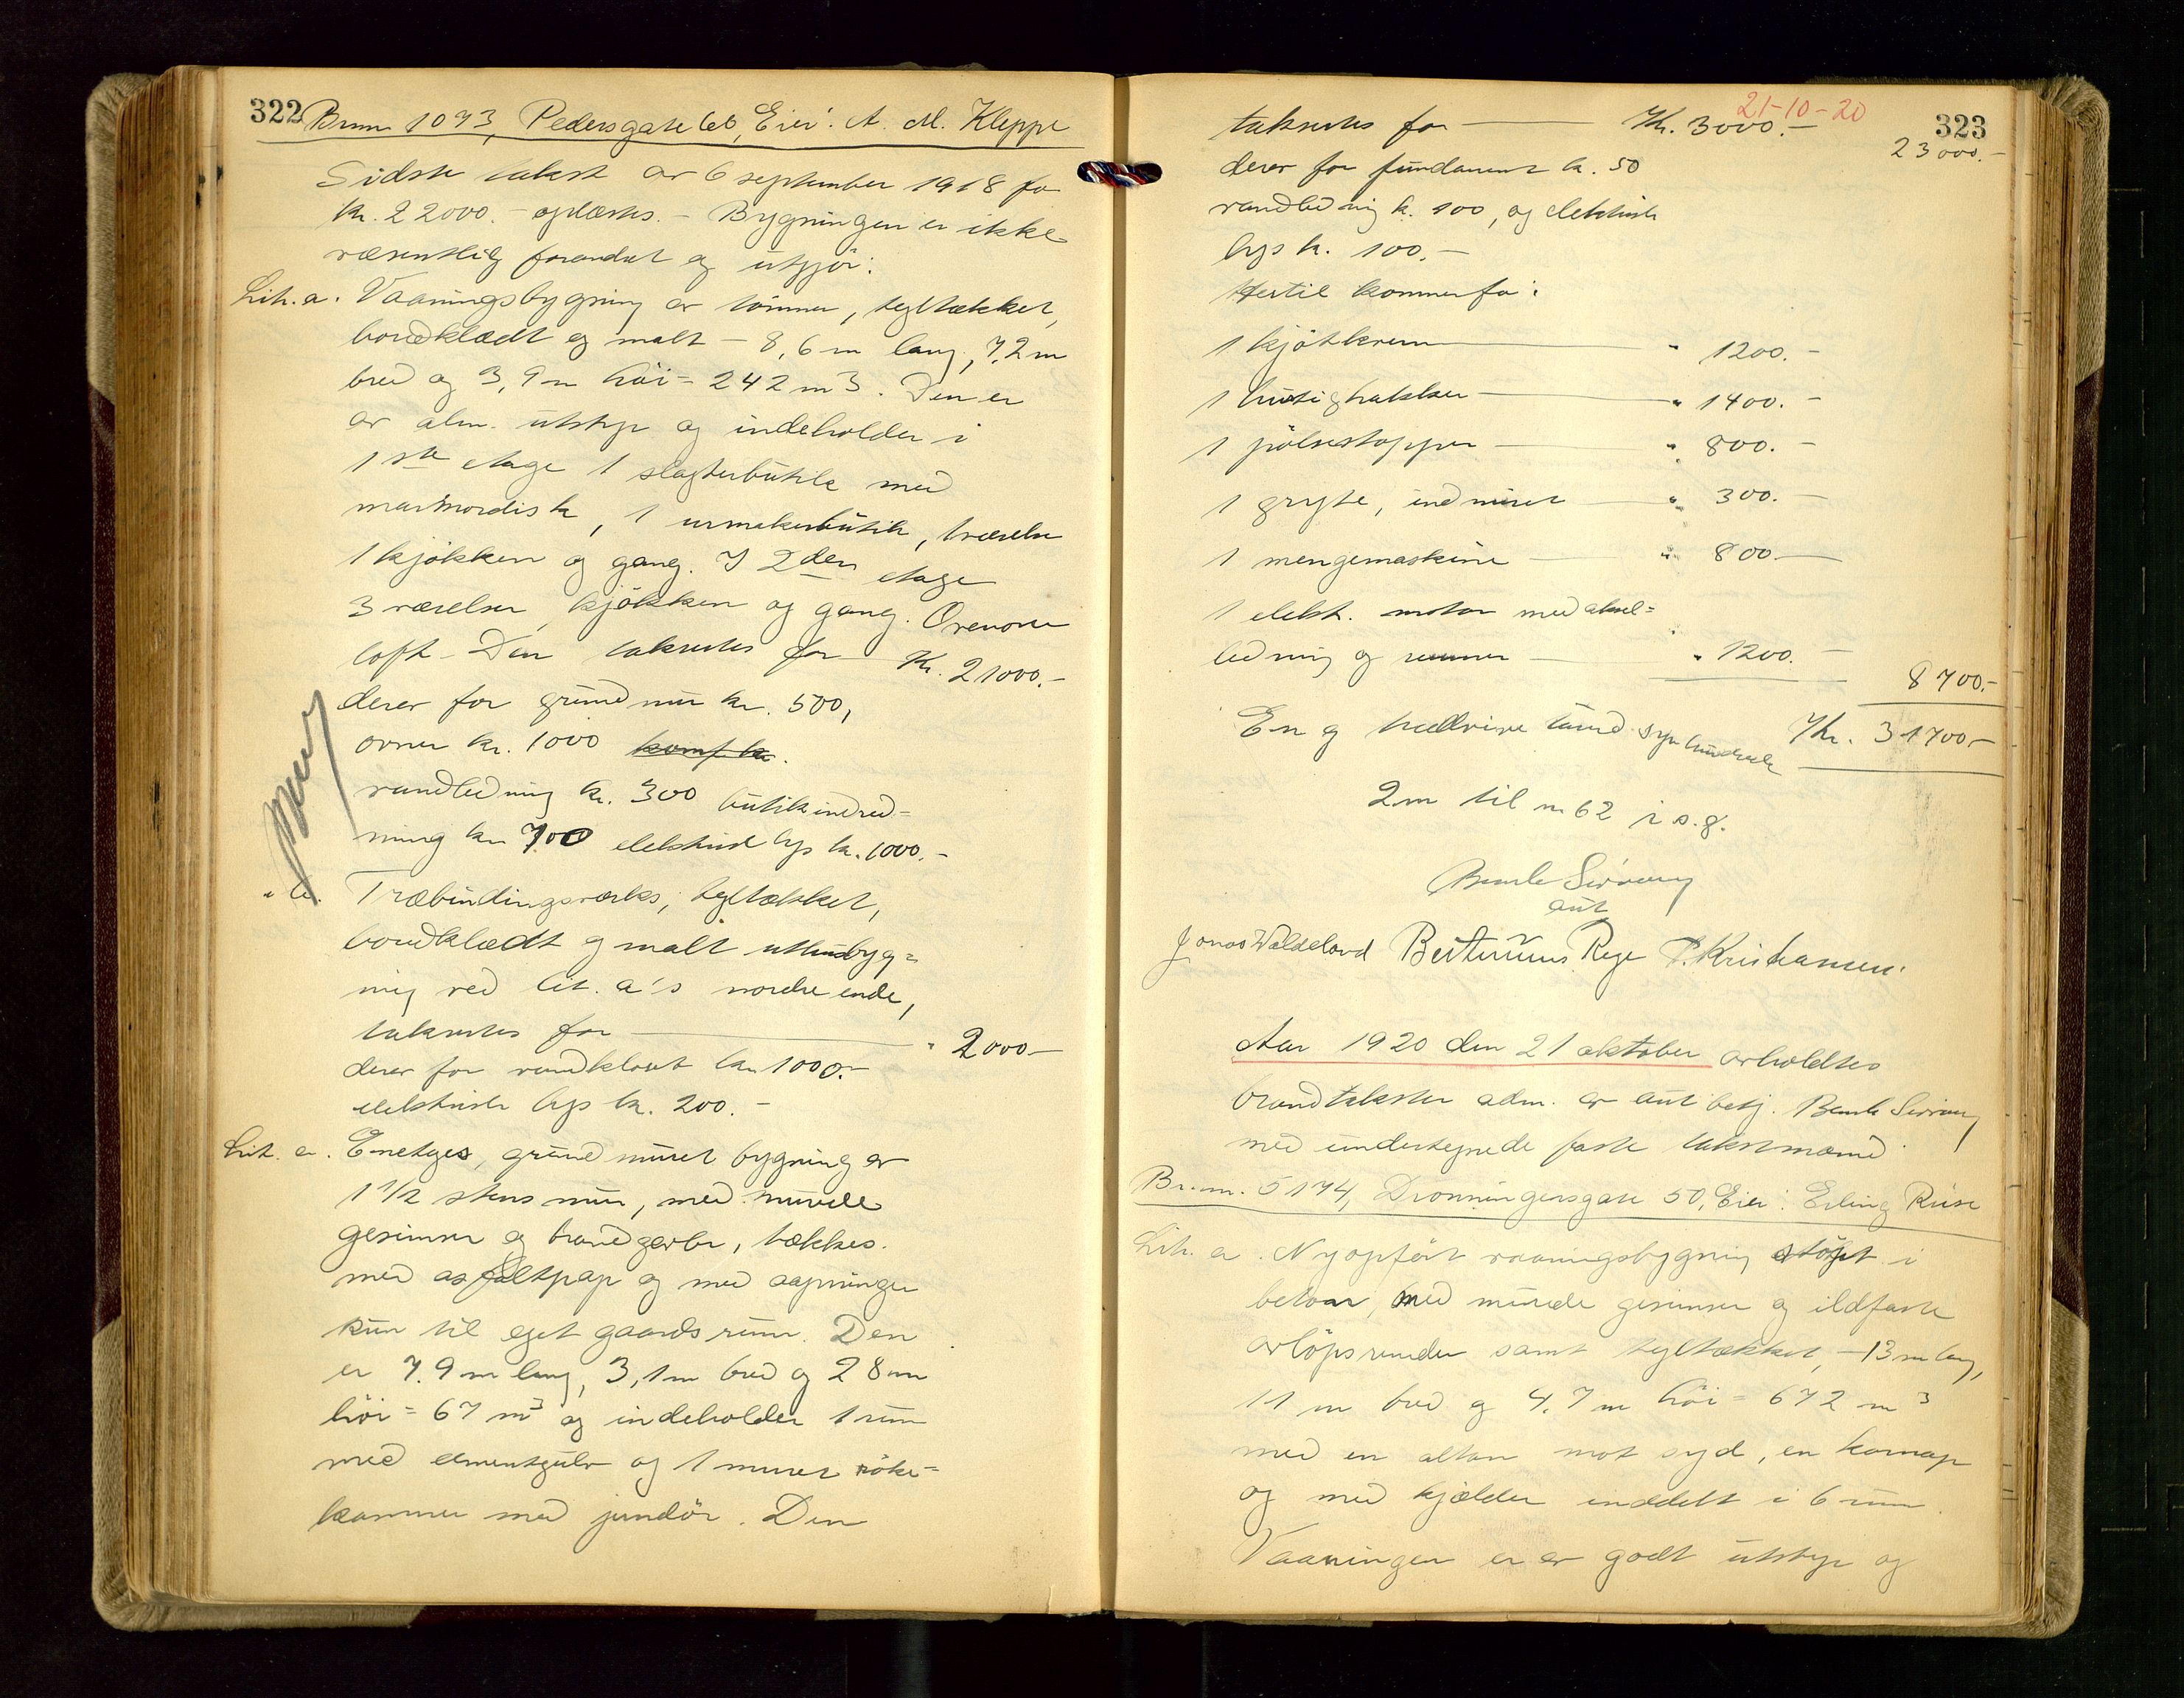 322
Brnm 1093, Pedersgate 66, Eier: A. M. Kleppe
Sidste takst av 6 september 1918 for
kr. 22000.- oplæstes. - Bygningen er ikke
væsentlig forandret og utgjør:
Lit. a. Vaaningsbygning av tømmer, tegltækket,
bordklædt og malt - 8,6 m lang, 7,2 m
bred og 3,9 m høi = 242 m3. Den er
av alm. utstyr og indeholder i
1ste etage 1 slagterbutik med
marmordisk, 1 urmakerbutik, værelse
1 kjøkken og gang. I 2den etage
3 værelser, kjøkken og gang. Ovenover
loft - Den takseres for Kr. 21000.-
derav for grundmur kr. 500,
ovner kr. 1000 komf. kr.
vandledning kr. 300 butikindred=
ning kr 700 elektrisk lys kr. 1000.-
" b. Træbindingsverks, tegltækket,
bordklædt og malt uthusbyg=
ning ved lit. a's nordre ende,
takseres for " 2000-
derav for vandkloset kr 1000.-
elektrisk lys kr. 200.-
Lit. c. Enetages, grundmuret bygning av
1 1/2 stens mur, med murede
gesimser og brandgavler, tækkes
med asfaltpap og med aapninger
kun til eget gaardsrum. Den
er 7.9 m lang, 3,1 m bred og 2 8 m
høi = 67 m3 og indeholder 1 rum
med cementgulv og 1 muret røke=
kammer med jerndør. Den
21-10-20
323
takseres for Kr. 3000.-
23000.-
derav for fundament kr. 50
vandledning kr. 100, og elektrisk
lys kr. 100.-
Hertil kommer for:
1 kjøtkvern " 1200.-
1 hurtighakker " 1400.-
1 pølsestopper " 800.-
1 gryte, indmuret " 300.-
1 mengemaskine " 800.-
1 elekt. motor med aksel=
ledning og remmer " 1200.-
8700.-
En og tredive tusind syv hundrede Kr. 31700-
2 m til nr 62 i s.g.
Bernh Sirevaag
aut
Jonas Waldeland Bertinius Rege P. Kristiansen.
Aar 1920 den 21 oktober avholdtes
brandtakster adm. av aut betj. Bernh Sirevaag
med undertegnede faste takstmænd
Br.nr. 5174, Dronningensgate 50, Eier: Erling Riise
Lit. a. Nyopført vaaningsbygning støpt i
beton, med murede gesimser og ildfaste
avløpsrender samt tegltækket, - 13 m lang,
11 m bred og 4.7 m høi = 672 m3
med en altan mot syd, en karnap
og med kjælder inddelt i 6 rum
Vaaningen er av godt utstyr og